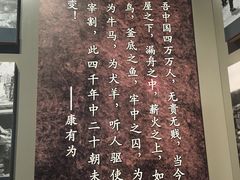 吾中国四万万人，无贵无贱，当今
屋之下，漏舟之中，薪火之上，如
鸟，釜底之鱼，牢中之囚，为
为牛马，为犬羊，听人驱使
宰割，此四千年中二十朝未
变！
——康有为